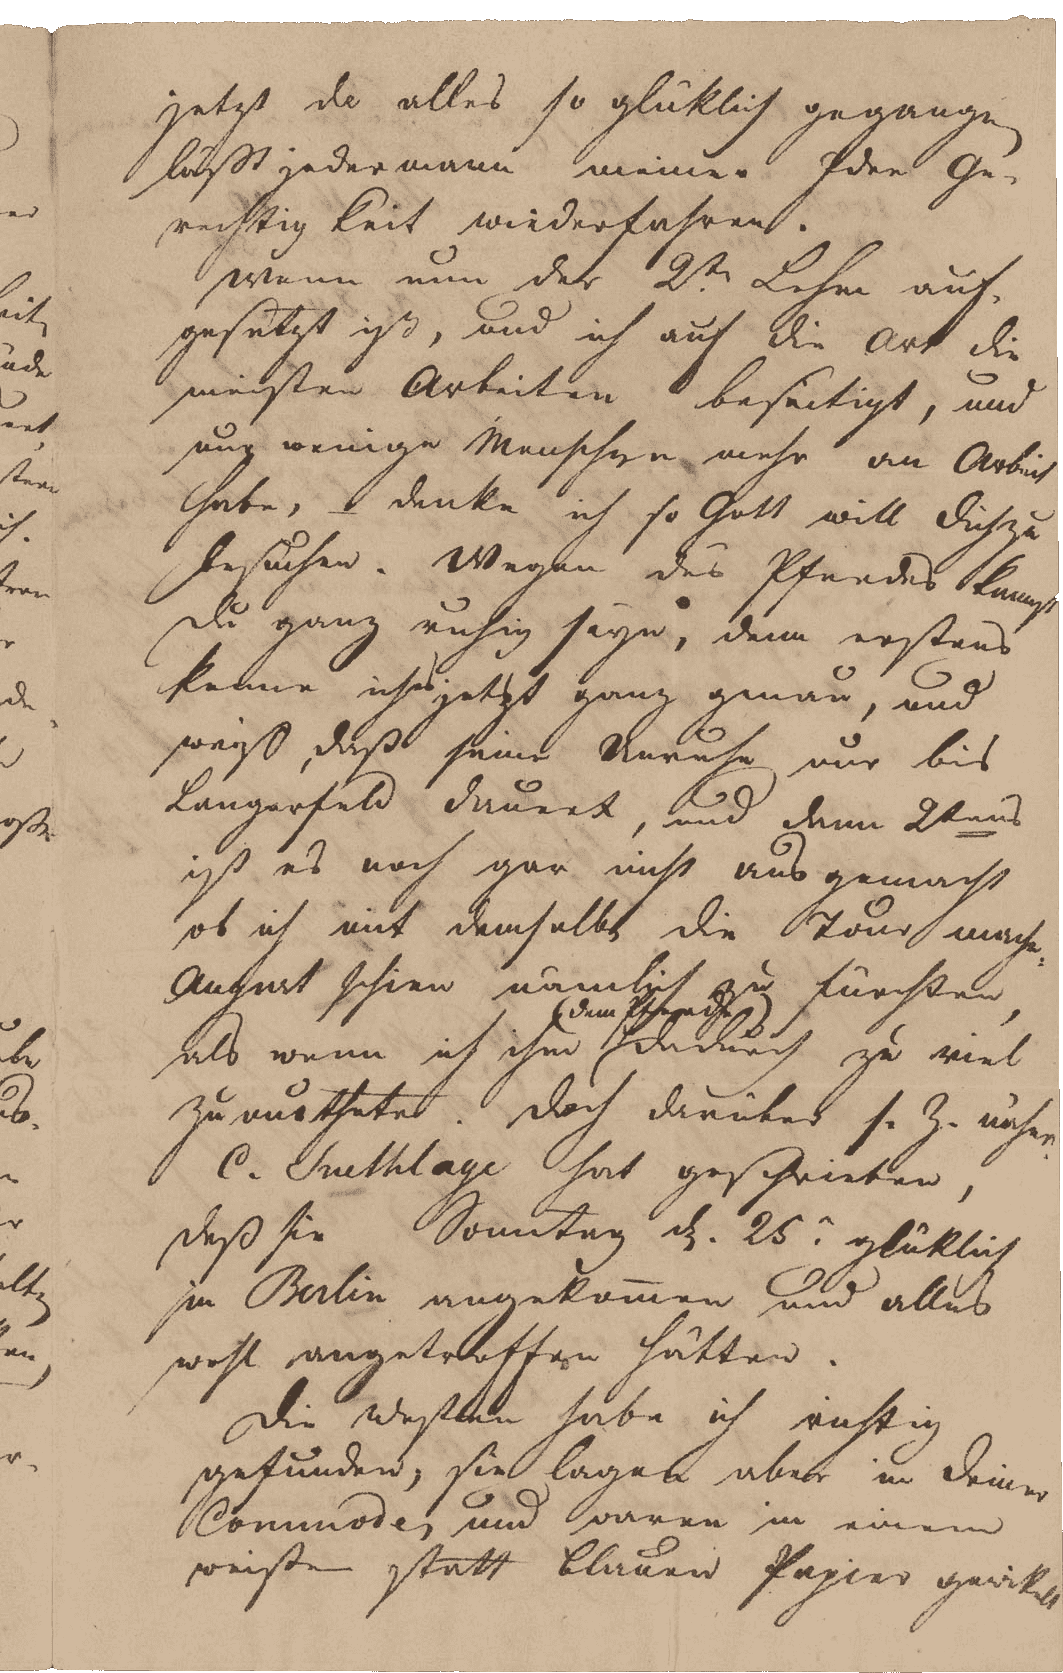 jetzt da alles so glüklich gegangen
läßt jedermann meiner Idee Ge-
rechtigkeit wiederfahren.
Wenn nun der 2te Lehm auf-
gesetzt ist, und ich auf die Art die
meisten Arbeiten beseitigt, und
nur wenige Menschen mehr an Arbeit
habe, denke ich so Gott will Dich zu
besuchen. Wegen des Pferdes kannst
Du ganz ruhig seyn, denn erstens
kenne ich es jetzt ganz genau, und
weiß, daß seine Unruhe nur bis
Langerfeld dauert, und denn 2tens
ist es noch gar nicht ausgemacht
ob ich mit demselben die Tour mache.
August schien nämlich zu fürchten,
(dem Pferde)
als wenn ich ihm dadurch zu viel
zumuthete. Doch darüber s. Z. näher.
C. Snethlage hat geschrieben,
daß sie Sonntag d. 25t glüklich
in Berlin angekom̄en und alles
wohl angetroffen hätten.
Die Westen habe ich richtig
gefunden, sie lagen aber in Deiner
Commode, und waren in einem
weißen statt blauen Papier gewikelt